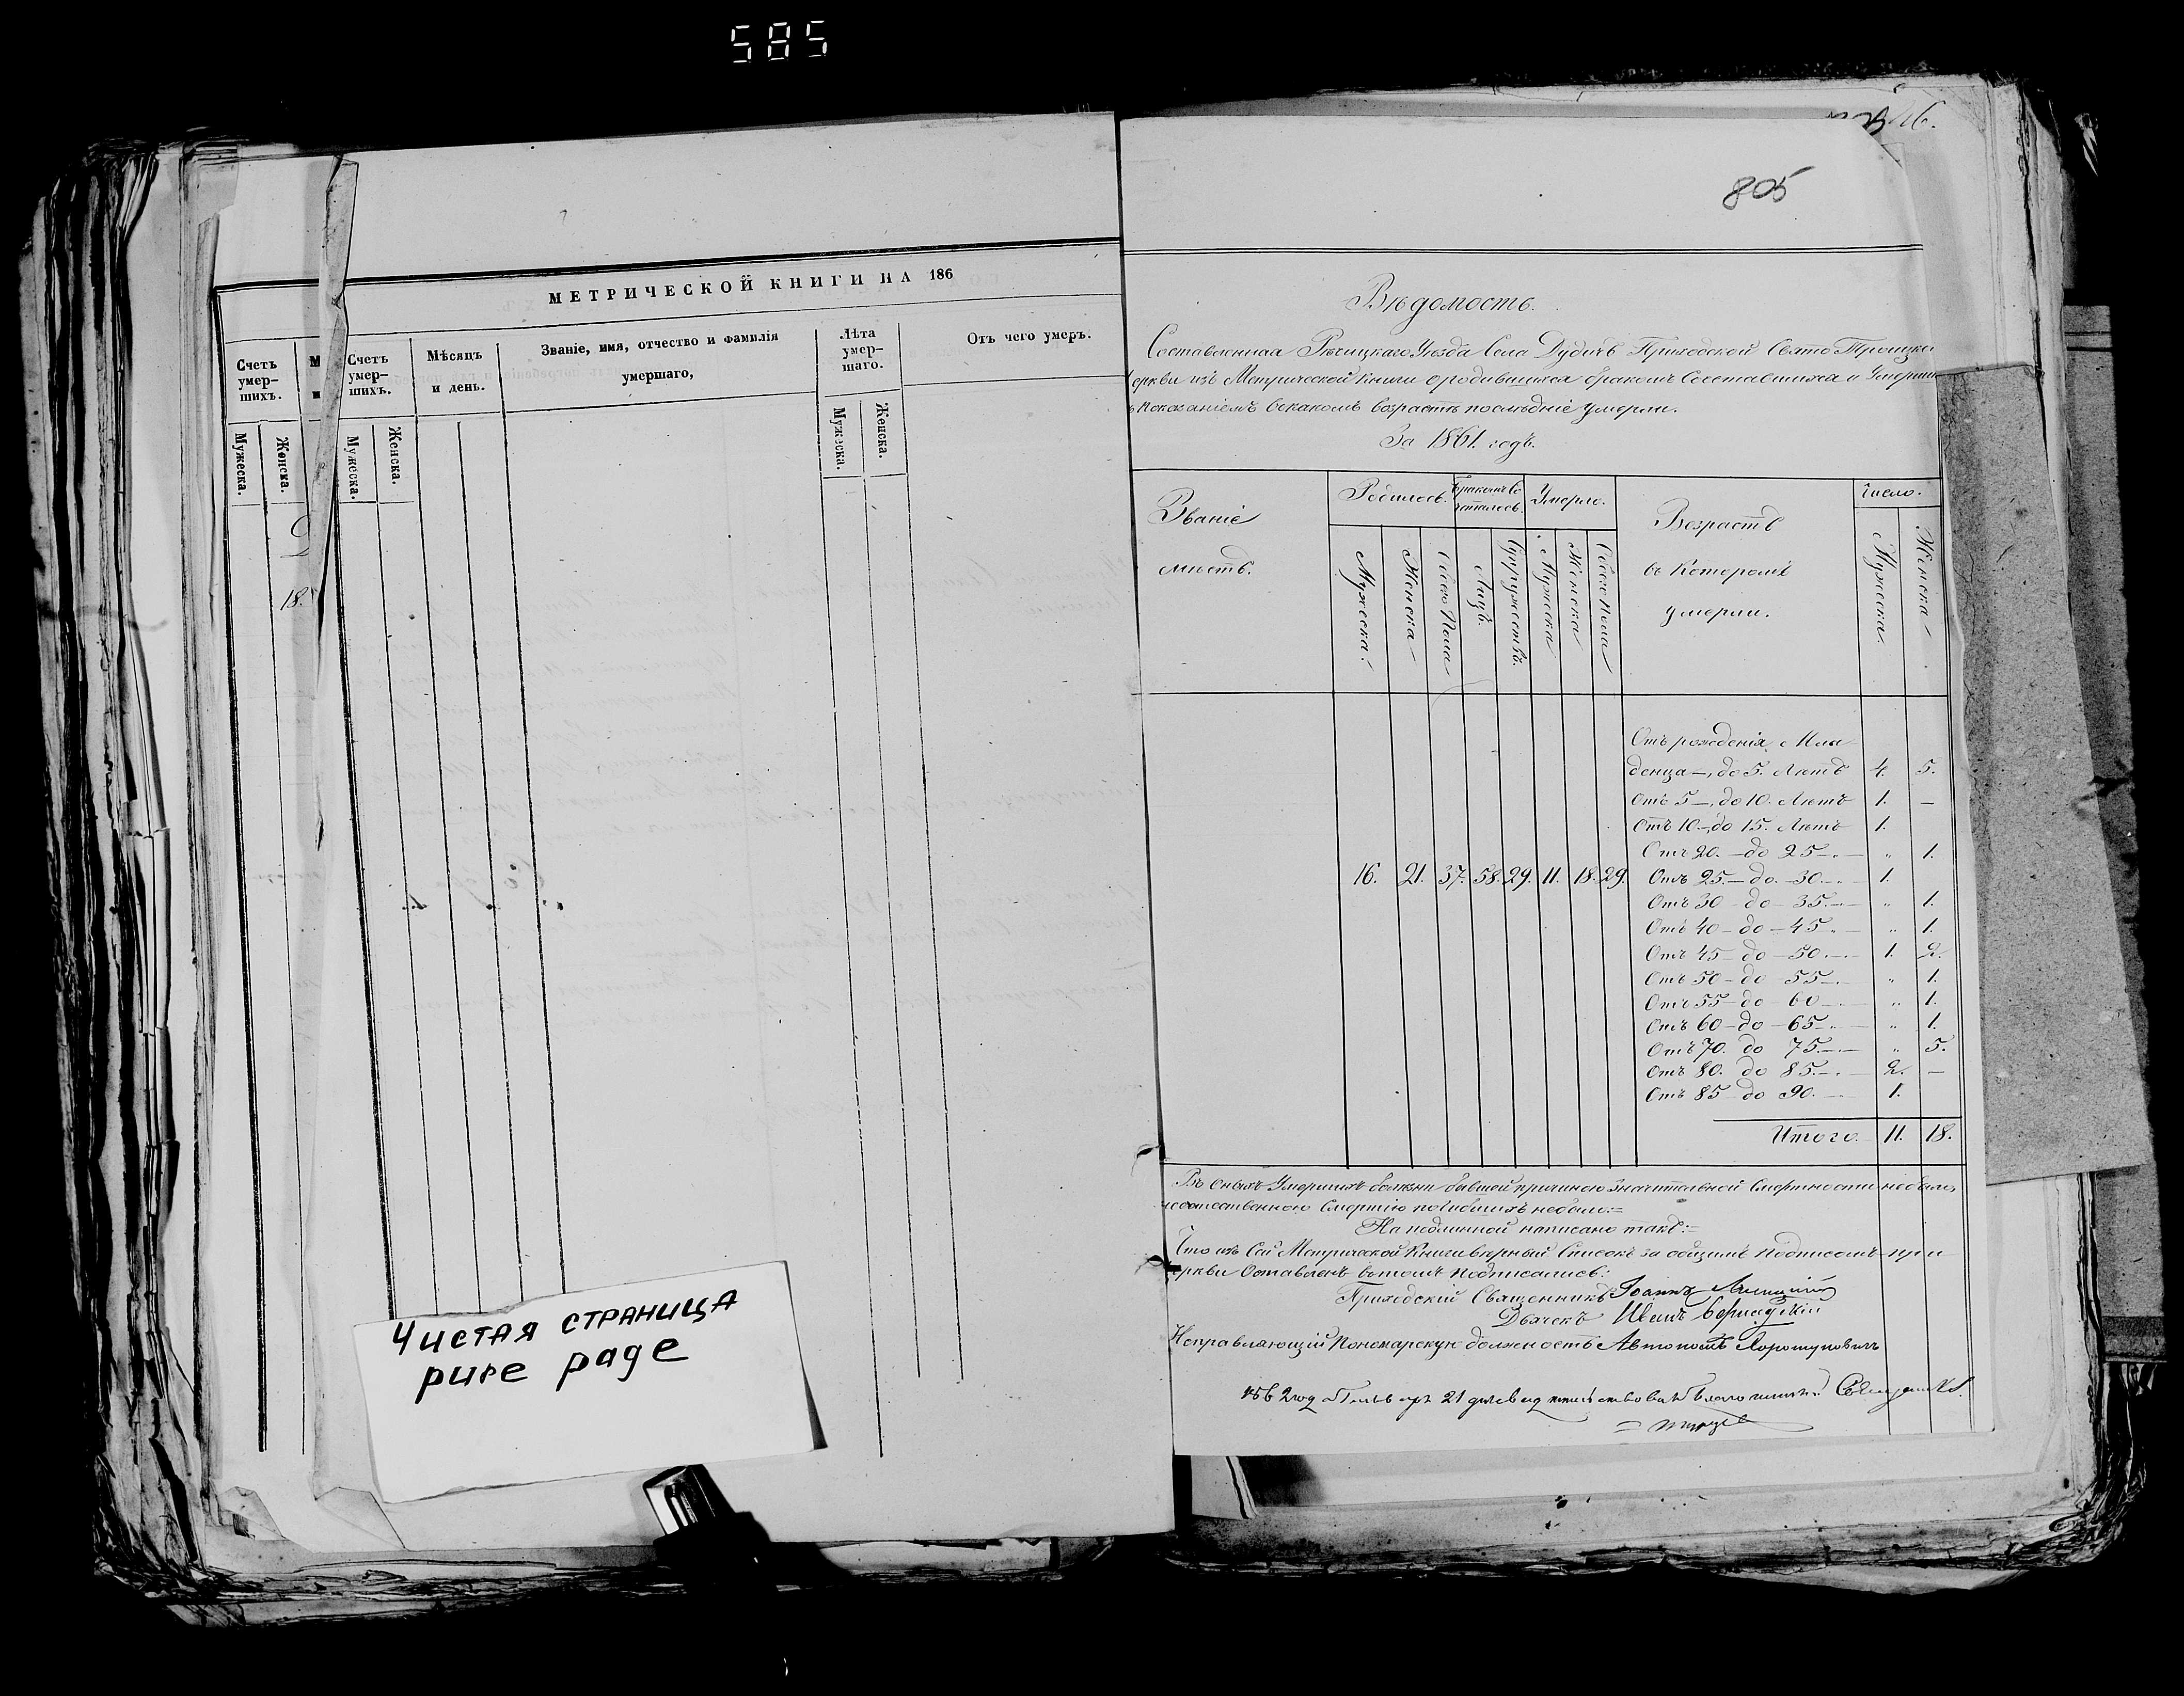 585
МЕТРИЧЕСКОЙ КНИГИ НА 186
Счетъ умер-
шихъ.
М
Счетъ умер-
шихъ.
Мѣсяцъ
и день.
Званіе, имя, отчество и фамилія
умершаго,
Лѣта
умер-
шаго.
Отъ чего умеръ.
Мужеска.
Женска.
Мужеска.
Женска.
Мужеска.
Женска.
18.
Чистая страница
pure page
805
Вѣдомость.
Составленная Рѣчицкаго Уѣзда Села Дудичъ Приходской Свято Троицко
еркви изъ Метрической Книги о родившихся бракомъ Состав­шихся и Умерши
Показаніемъ въ какомъ возрастѣ послѣдніе умерли.
За 1861. годъ.
Званіе
мѣстъ.
Родилось.
Бракомъ Со
Умерло.
Возрастъ
въ Которомъ
умерли.
Число.
Мужеска.
Женска
Обоего Пола
Лицъ.
Супружествъ.
Мужеска
Женска
Обоего Пола
Мужеска.
Женска
Отъ рожденія Мла
денца —, до 5. Лѣтъ 4. 5.
Отъ 5 —, до 10. Лѣтъ 1. —
Отъ 10. — до 15. Лѣтъ 1.
Отъ 20. — до 25 — „ — „ 1.
16. 21. 37. 58. 29. 11. 18. 29. Отъ 25. — до. — 30. — 1.
Отъ 30 — до — 35. — „ 1.
Отъ 40 — до — 45 „ — „ 1.
Отъ 45 — до — 50. — 1. 2.
Отъ 50 — до 55 — „ 1.
Отъ 55 — до 60 — „ 1.
Отъ 60 — до — 65 — „ 1.
Отъ 70. до 75. — „ 5.
Отъ 80. до 85. — 2. —
Отъ 85 до 90. — 1.
Итого. 11. 18.
Въ оныхъ Умершихъ болѣзни бывшей причиною значительной Смертности небыло,
неестественною Смертію погибшихъ небыло:=
На подлинной написано такъ:=
Что изъ Сей Метрической Книги вѣрный Списокъ за общимъ подписомъ при
еркви Оставленъ въ томъ подписались:
Приходский Священникъ Іоаннъ
Дьячекъ Иванъ
Исправляющій Пономарскую должность
21